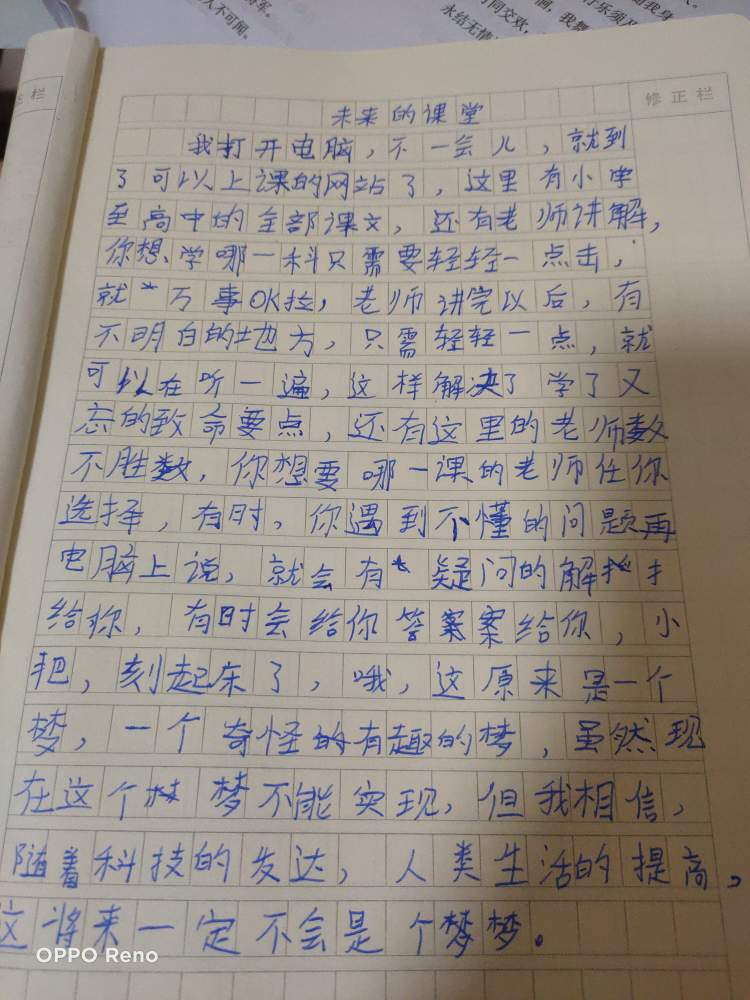 人不可闻。
将军。
时同交欢，
永结无情
修正栏
栏
未来的课堂
我打开电脑，不一会儿，就到
了可以上课的网站了，这里有小学
至高中的全部课文，还有老师讲解，
你想学哪一科只需要轻轻一点击，
就万事OK拉，老师讲完以后，有
不明白的地方，只需轻轻一点，就
可以在听一遍，这样解决了学了又
忘的致命要点，还有这里的老师数
不胜数，你想要哪一课的老师任你
选择，有时，你遇到不懂的问题再
电脑上说，就会有疑问的解
给你，有时会给你答案案给你，小
耙，刻起床了，哦，这原来是一个
梦，一个奇怪的有趣的梦，虽然现
在这个梦不能实现，但我相信，
随着科技的发达，人类生活的提高，
这将来一定不会是个梦梦。
OPPO Reno